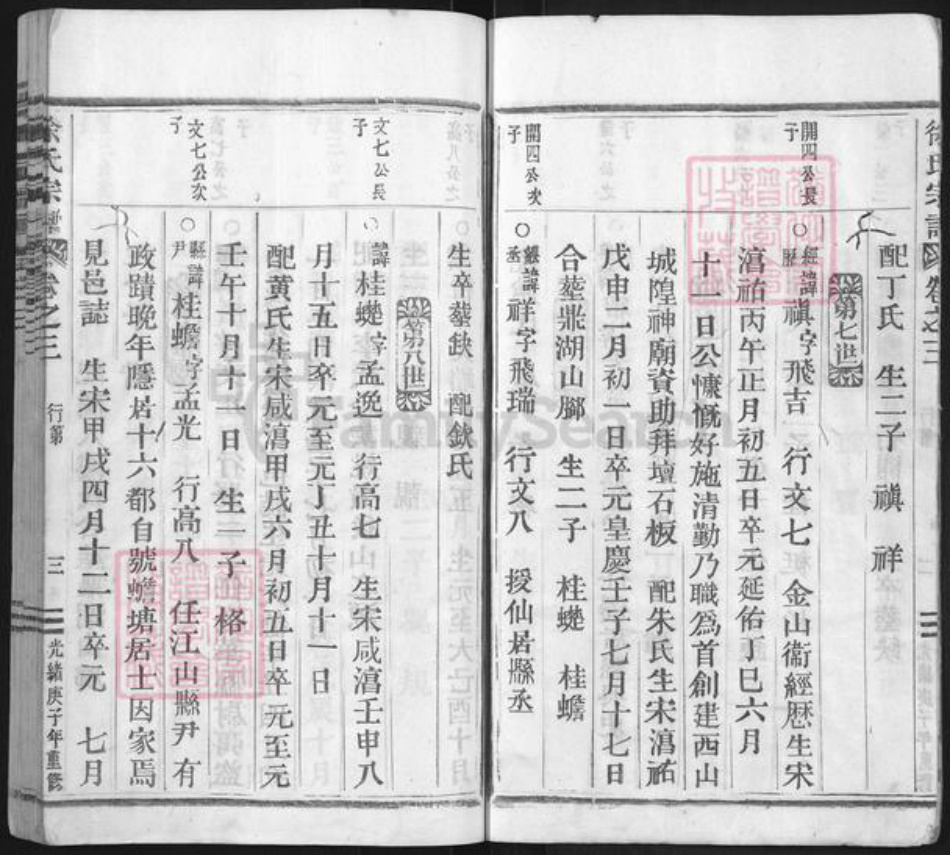 徐氏宗譜 卷之三
配丁氏 生二子 禛 祥
第七世
開四公長子
○經歷諱禛字飛吉 行文七 金山衞經歷生宋
湻祐丙午正月初五日卒元延佑丁巳六月
十一日公慷慨好施清勤乃職爲首創建西山
城隍神廟資助拜壇石板 配朱氏生宋湻祐
戊申二月初一日卒元皇慶壬子七月十七日
合塟鼎湖山脚 生二子 桂𣚴 桂蟾
開四公次子
○縣丞諱祥字飛瑞 行文八 授仙居縣丞
生卒塟缺 配欽氏
第八世
文七公長子
○諱桂 字孟逸 行高七 生宋咸湻壬申八
月十五日卒元至元丁丑十月十一日
配黄氏生宋咸湻甲戌六月初五日卒元至元
壬午十月十一日 生一子 格
文七公次子
○縣尹諱桂蟾字孟光 行高八 任江山縣尹有
政蹟晚年隱居十六都自號蟾塘居士因家焉
見邑誌 生宋甲戌四月十二日卒元 七月
徐氏宗譜 卷之三 行第 三 光緒庚子年重修
FamilySearch